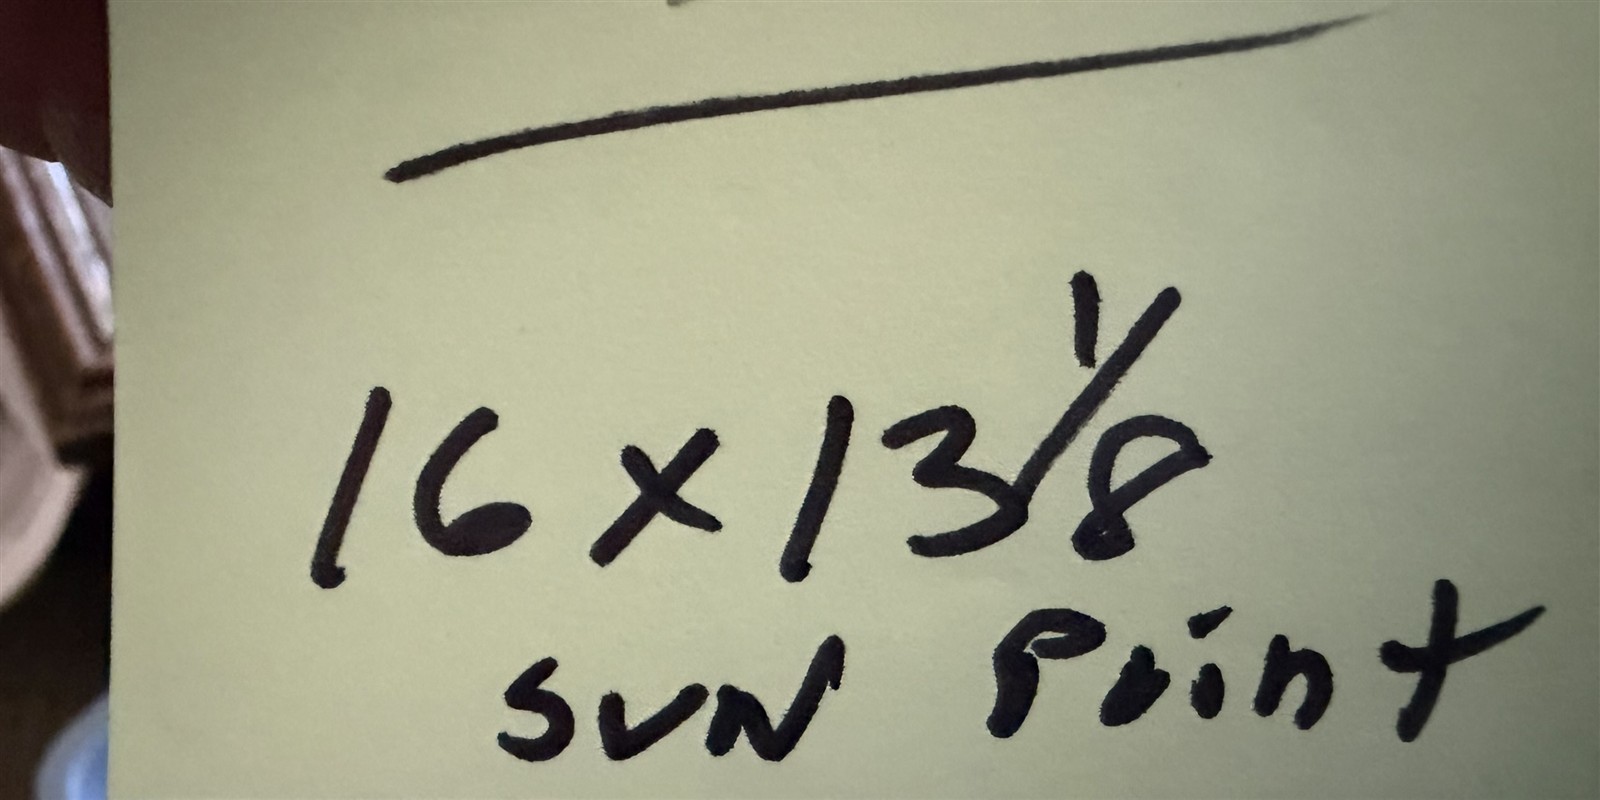 16 x 13 1/8
SUN Point